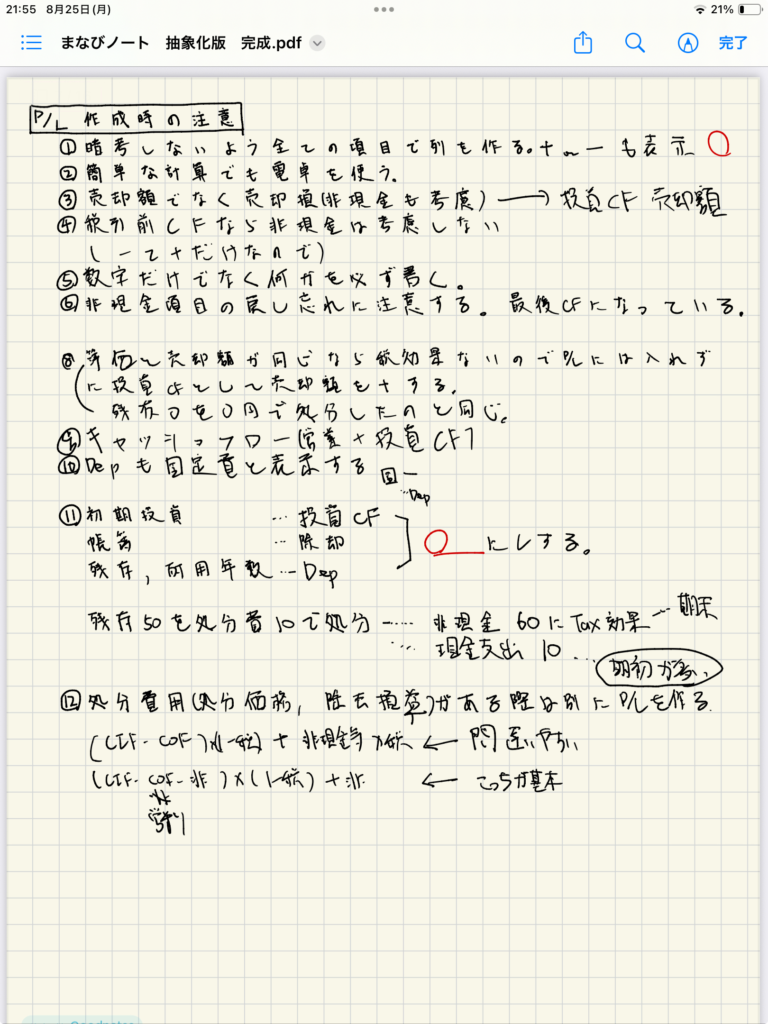 21:55 8月25日(月)
21%
まなびノート 抽象化版 完成.pdf
完了
P/L 作成時の注意
① 暗考しないよう全ての項目で列を作る。+ or − も表示
② 簡単な計算でも電卓を使う。
③ 売却額でなく売却損(非現金も考慮) → 投資CF 売却額
④ 税引前CFなら非現金は考慮しない
(−て+だけなので)
⑤ 数字だけでなく何かを必ず書く。
⑥ 非現金項目の戻し忘れに注意する。最後CFになっている。
⑧ 簿価と売却額が同じなら税効果ないのでP/Lには入れず
に投資CFとして売却額を+する。
残存0を0円で処分したのと同じ。
⑨ キャッシュフロー(営業+投資CF)
⑩ Depも固定費と表示する 固−
…Dep
⑪ 初期投資 … 投資CF
帳簿 … 除却
残存,耐用年数 … Dep
にレする。
残存50を処分費10で処分 …… 非現金 60にTax効果 … 期末
…… 現金支出 10 …
⑫ 処分費用(処分価格, 除去損益)がある際は別にP/Lを作る
(CIF-COF)×(1-税) + 非現金 ← 間違いやすい
(CIF-COF-非)×(1-税) + 非 ← こっちが基本